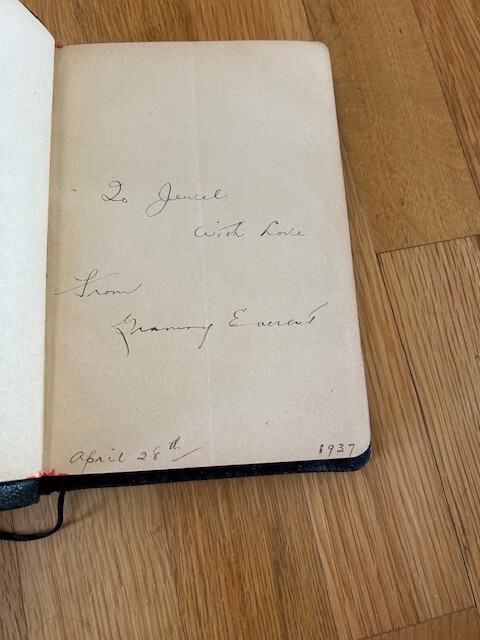 To Jewel
with Love
From
Grammy Everest
April 28th 1937